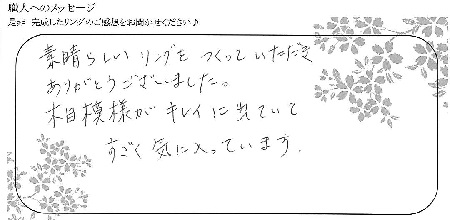 職人へのメッセージ
是非 完成したリングのご感想をお聞かせください♪
素晴らしい リングを つくって いただき
ありがとうございました。
木目模様が キレイに 出ていて
すごく 気に入っています.